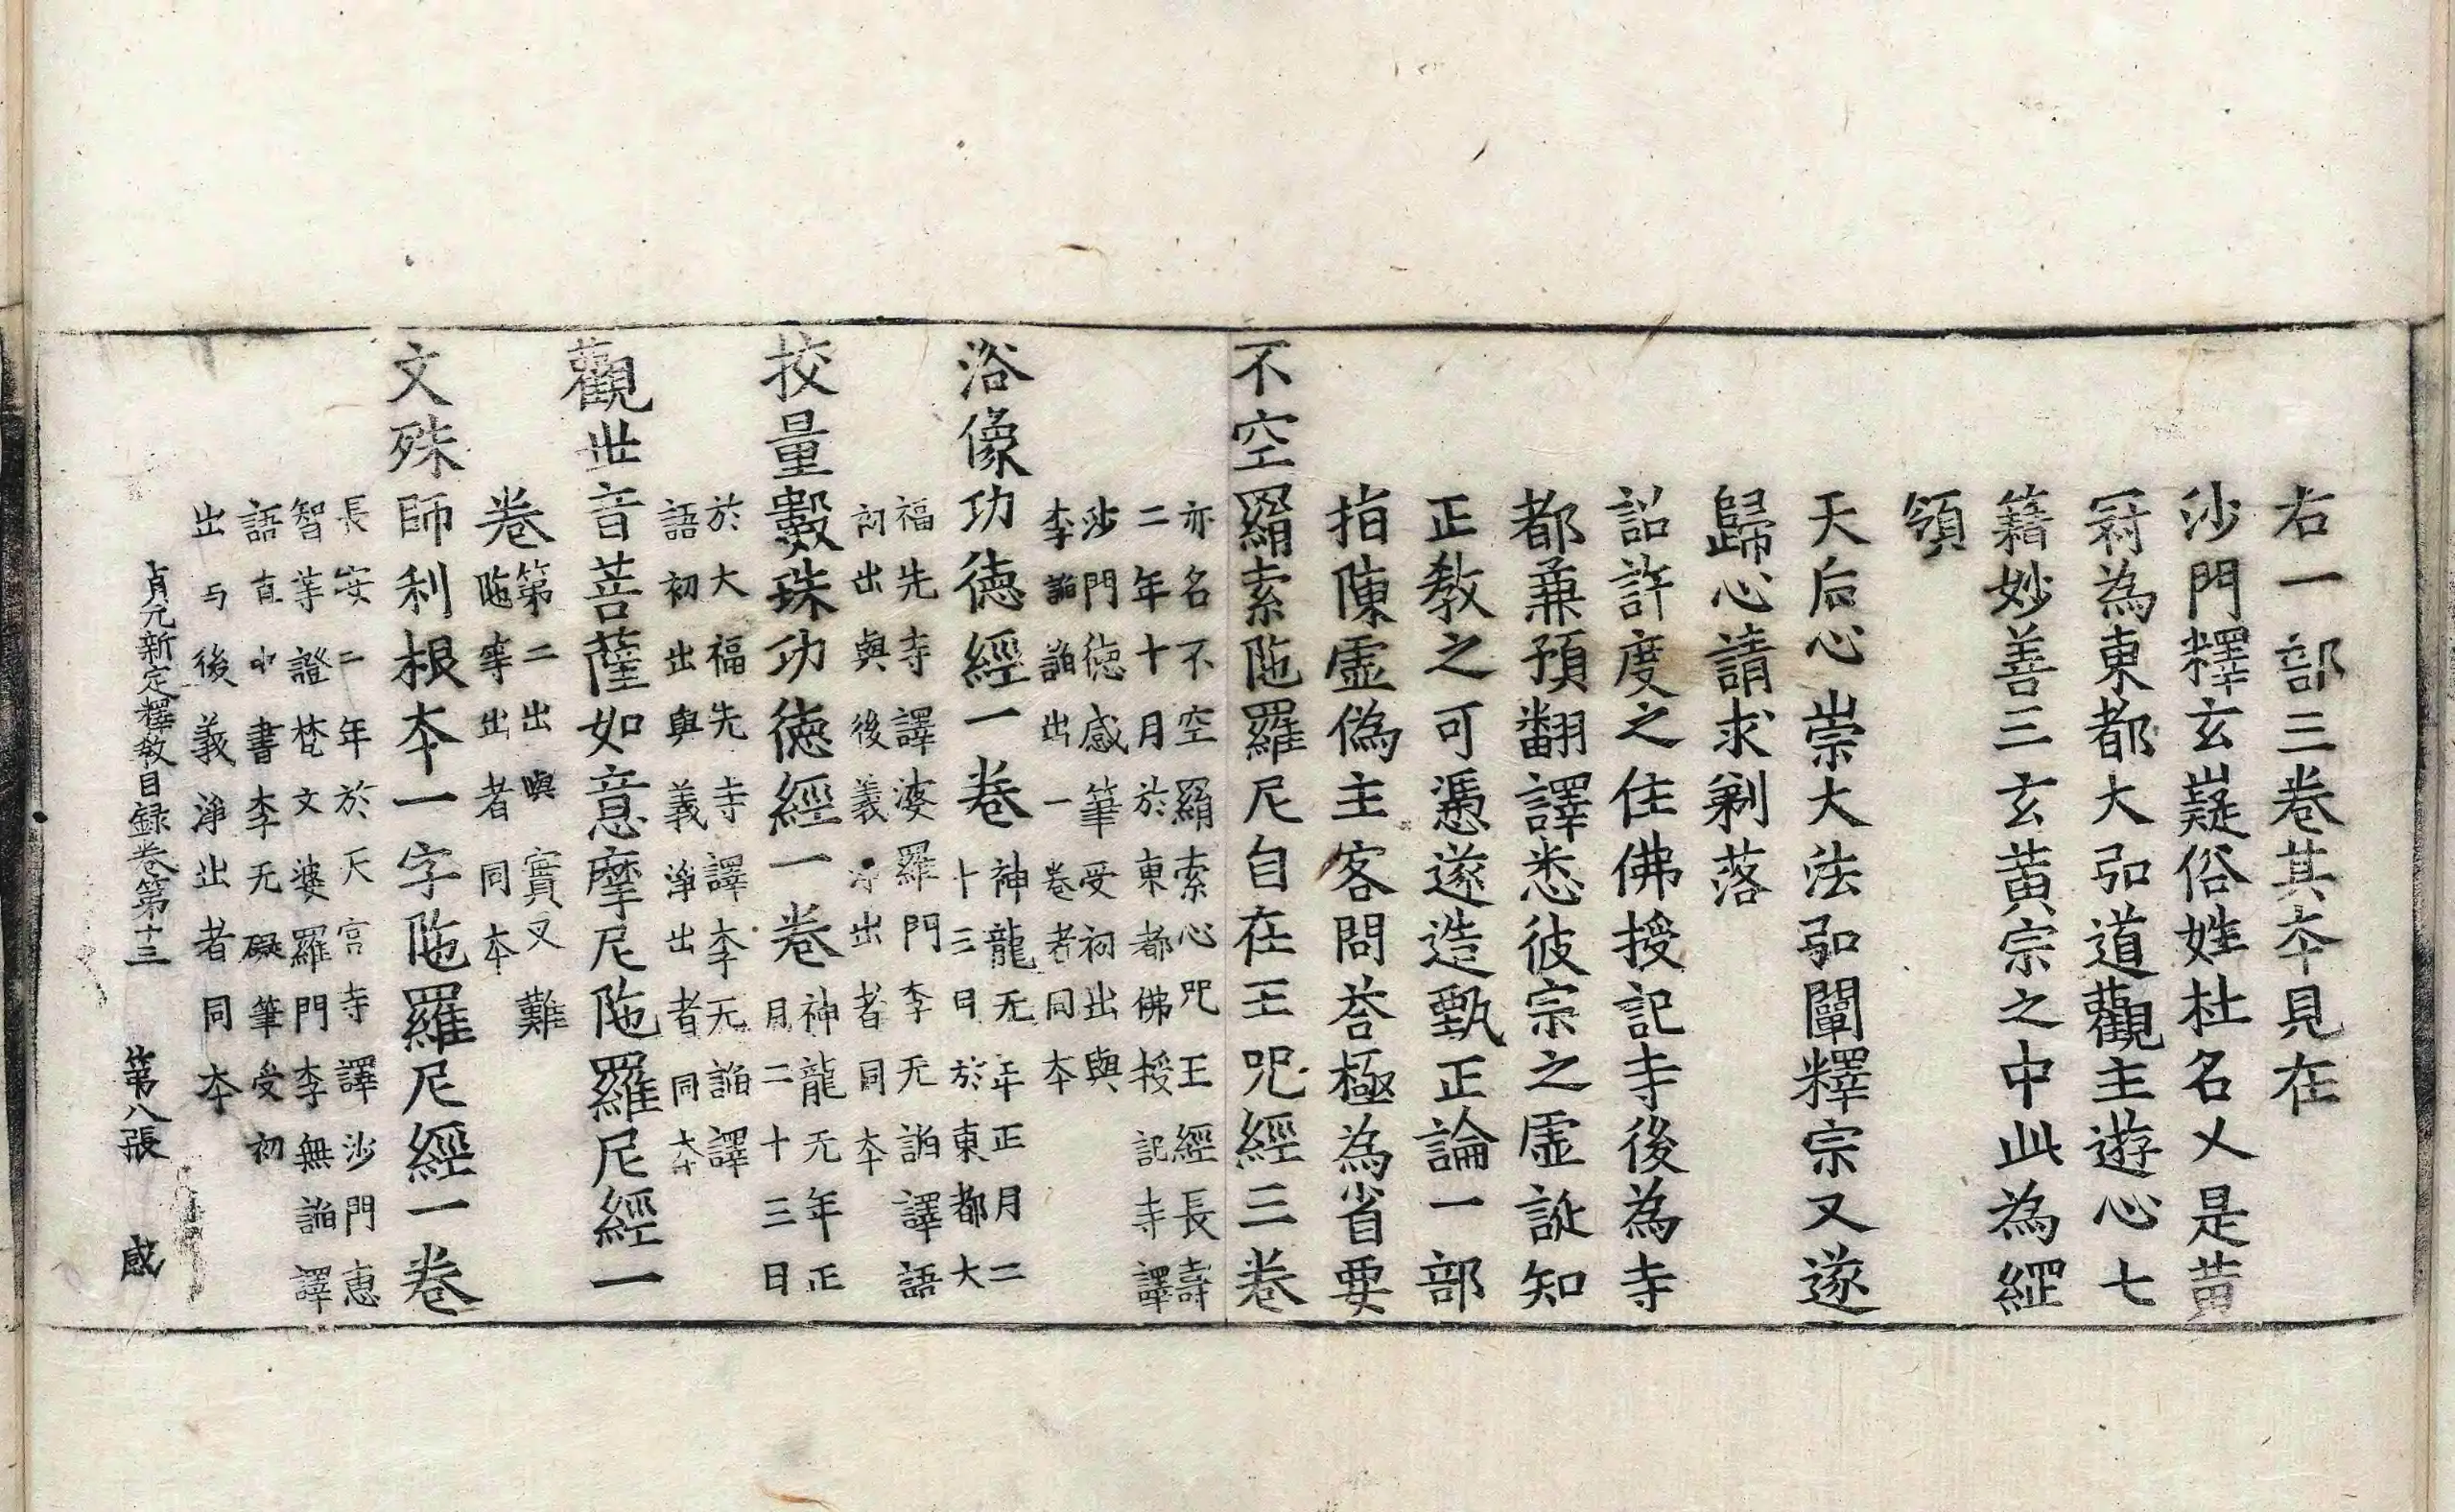 右一部三卷其本見在
沙門釋玄嶷俗姓杜名乂是黃
冠為東都大弘道觀主遊心七
籍妙善三玄黃宗之中此為綱
領
天后心崇大法弘闡釋宗又遂
歸心請求剃落
詔許度之住佛授記寺後為寺
都兼預翻譯悉彼宗之虛誕知
正教之可憑遂造甄正論一部
指陳虛偽主客問荅極為省要
不空羂索陁羅尼自在王呪經三卷
亦名不空羂索心呪王經長壽
二年十月於東都佛授記寺譯
沙門德感筆受初出與
李諂諂出一卷者同本
浴像功德經一卷
神龍元年正月二
十三日於東都大
福先寺譯婆羅門李无諂譯語
初出與後義淨出者同本
挍量數珠功德經一卷
神龍元年正
月二十三日
於大福先寺譯李无諂譯
語初出與義淨出者同本
觀世音菩薩如意摩尼陁羅尼經一
卷
第二出與實叉難
陁等出者同本
文殊師利根本一字陁羅尼經一卷
長安二年於天宮寺譯沙門惠
智等證梵文婆羅門李無諂譯
語直中書李无礙筆受初
出与後義淨出者同本
貞元新定釋教目録卷第十三 第八張 感